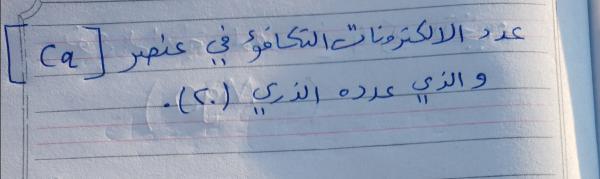 عدد الالكترونات التكافؤ في عنصر [Ca]
والذي عدده الذري (٢٠).